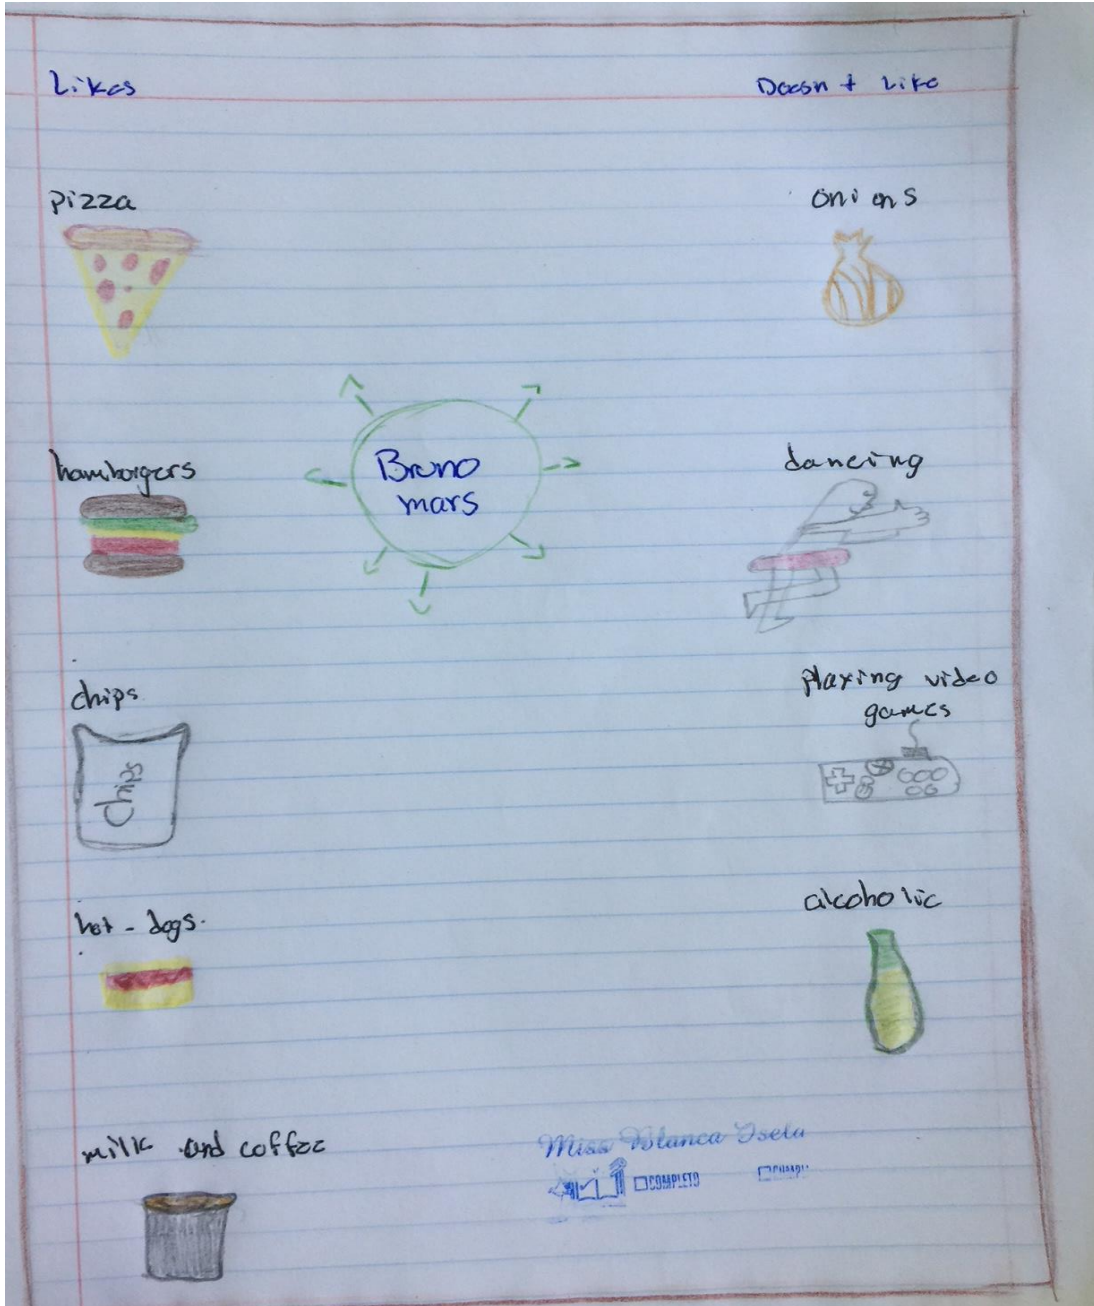 Likes
Doesn t Like
pizza
onions
hamborgers
Bruno
mars
dancing
chips
playing video
games
Chips
hot - dogs.
alcoholic
milk and coffee
Miss Blanca Isela
COMPLETO